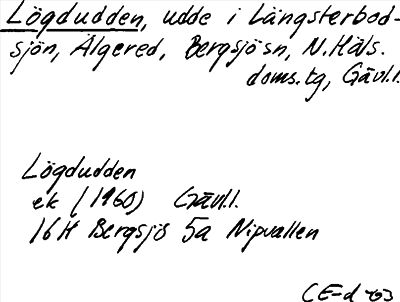 Lögdudden, udde i Längsterbod-
sjön, Älgered, Bergsjösn, N.Häls.
doms.tg, Gävl.l.
Lögdudden
ek (1960) Gävl.l.
16H Bergsjö 5a Nipvallen
CE-d -63